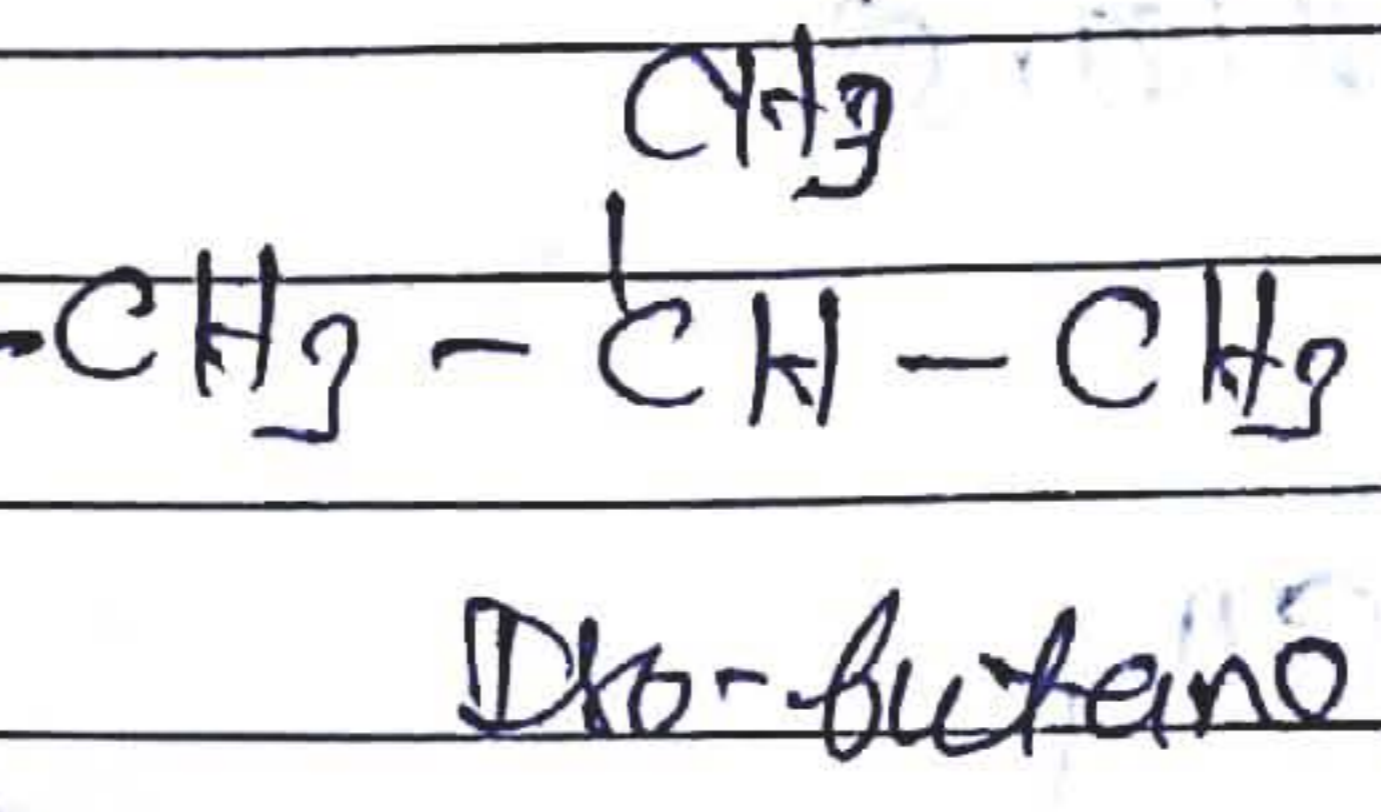 CH3
-CH3 - CH - CH3
Iso-butano